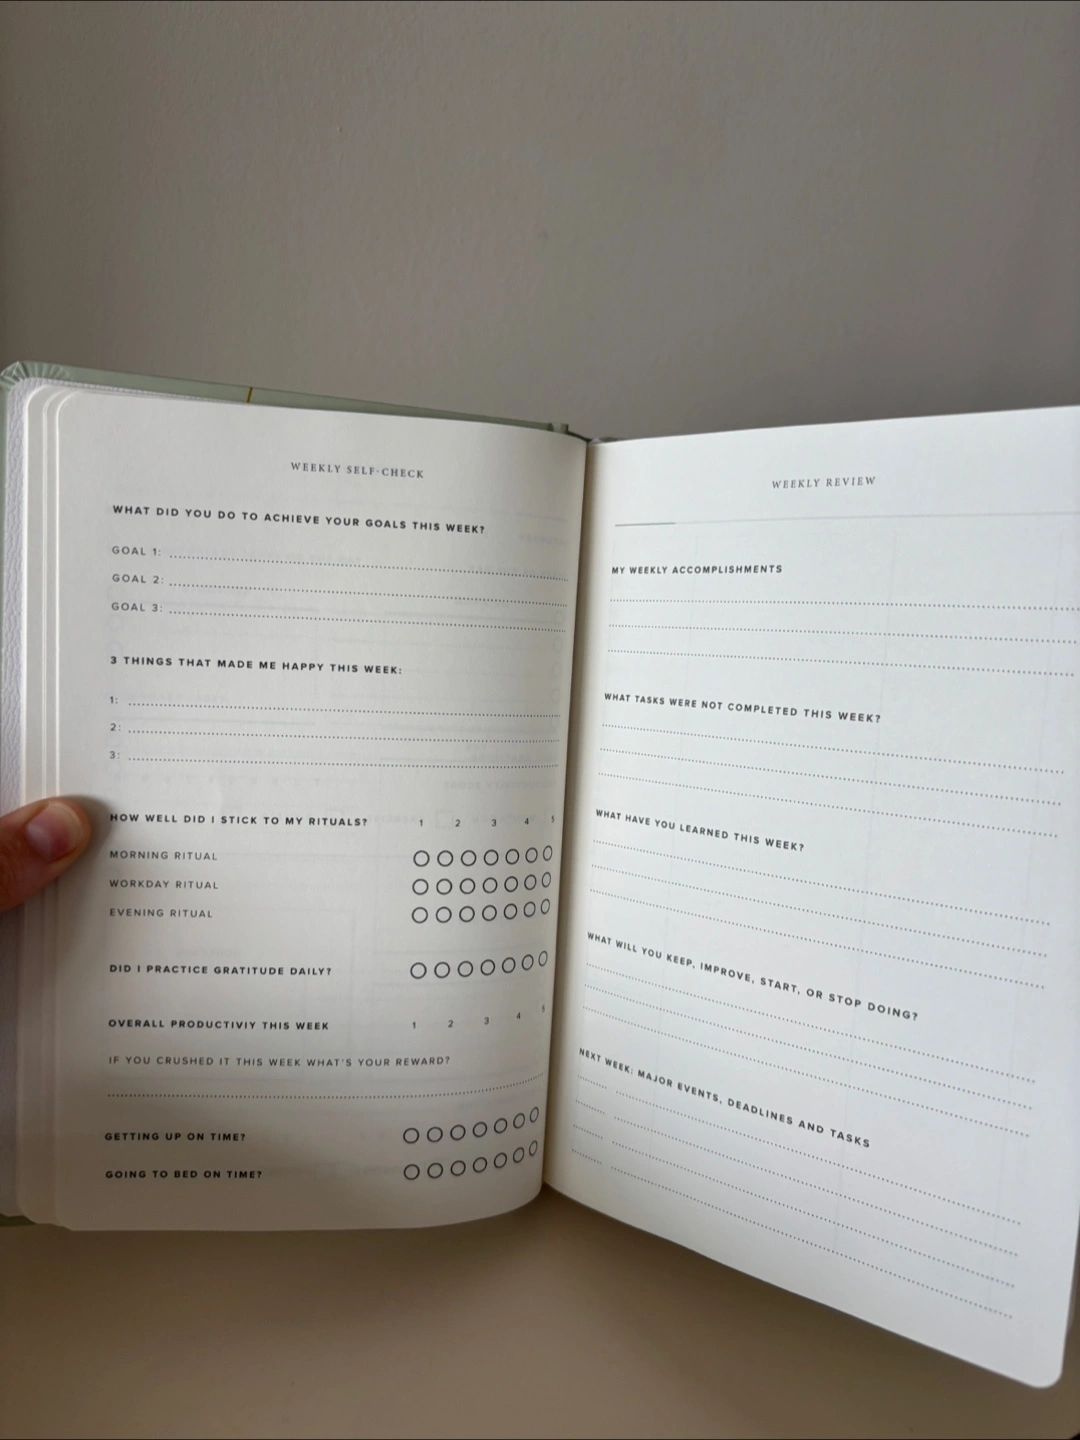 WEEKLY SELF-CHECK
WHAT DID YOU DO TO ACHIEVE YOUR GOALS THIS WEEK?
GOAL 1:
GOAL 2:
GOAL 3:
3 THINGS THAT MADE ME HAPPY THIS WEEK:
1:
2:
3:
HOW WELL DID I STICK TO MY RITUALS? 1 2 3 4 5
MORNING RITUAL
WORKDAY RITUAL
EVENING RITUAL
DID I PRACTICE GRATITUDE DAILY?
OVERALL PRODUCTIVIY THIS WEEK 1 2 3 4 5
IF YOU CRUSHED IT THIS WEEK WHAT'S YOUR REWARD?
GETTING UP ON TIME?
GOING TO BED ON TIME?
WEEKLY REVIEW
MY WEEKLY ACCOMPLISHMENTS
WHAT TASKS WERE NOT COMPLETED THIS WEEK?
WHAT HAVE YOU LEARNED THIS WEEK?
WHAT WILL YOU KEEP, IMPROVE, START, OR STOP DOING?
NEXT WEEK: MAJOR EVENTS, DEADLINES AND TASKS